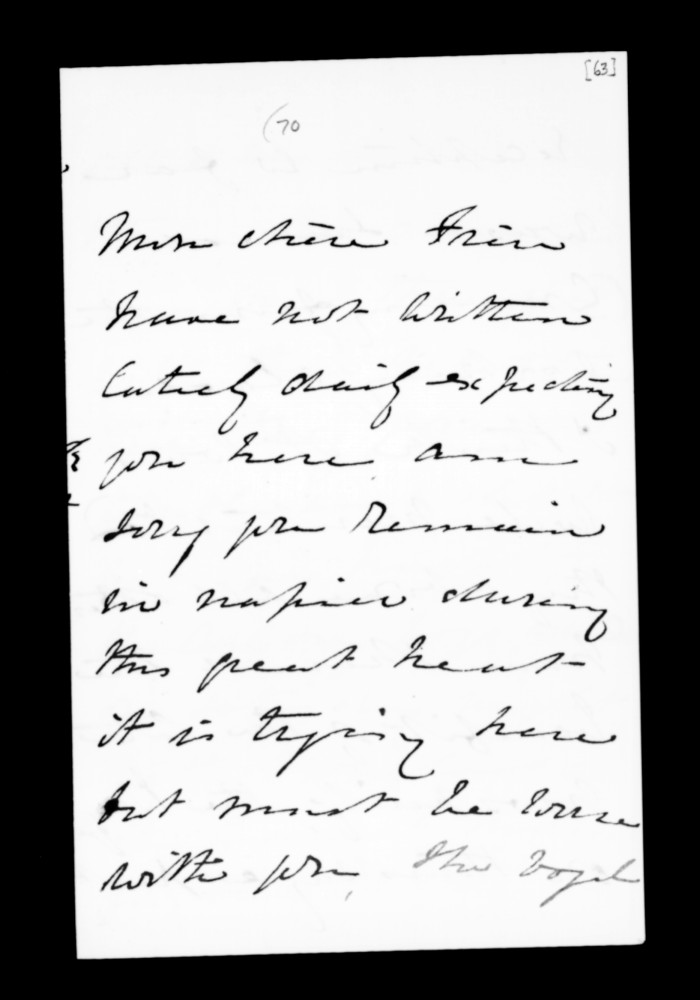 [63]
(70
Mon chère Frère
have not written
lately daily expecting
you here am
sorry you remain
in napier during
this great heat
it is trying here
but must be worse
with you, The Vogel